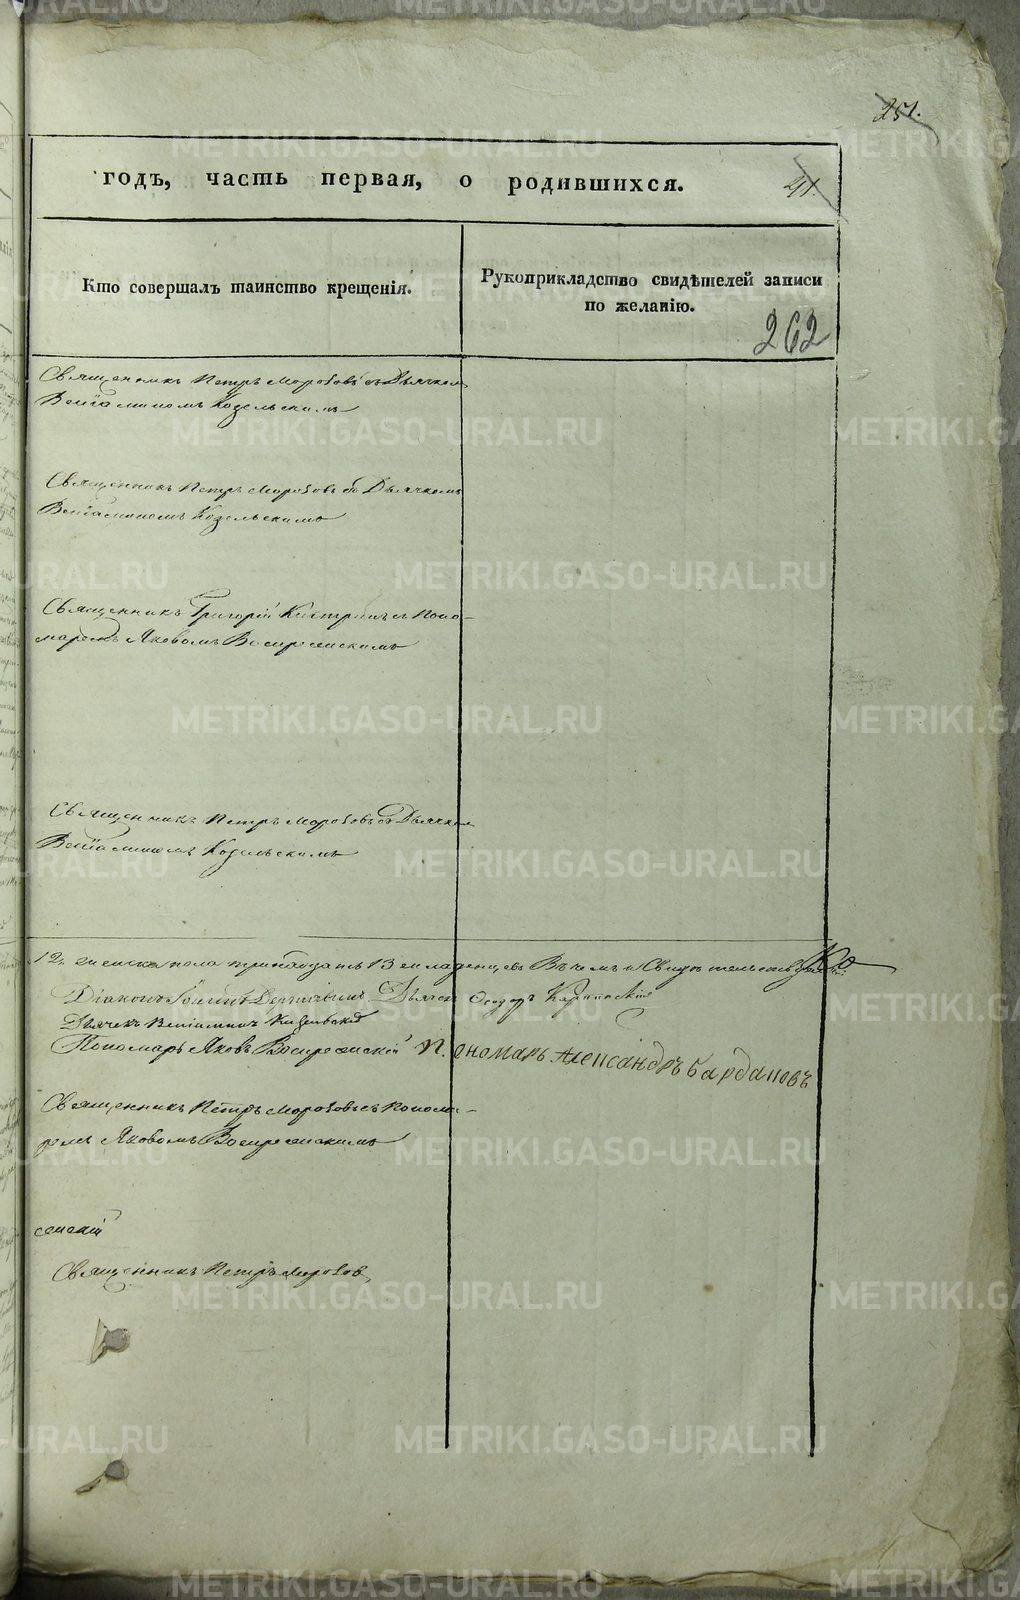 251.
годъ, часть первая, о родившихся.
41.
Кто совершалъ таинство крещенія.
Рукоприкладство свидѣтелей записи
по желанію.
262
Священникъ Петръ Морозовъ съ Дьячком
Веніаминомъ Козельскимъ
Священникъ Петръ Морозовъ со Дьячкомъ
Веніаминомъ Козельскимъ
Священникъ Григорій съ Поно-
маремъ Яковомъ Воскресенскимъ
Священникъ Петръ Морозовъ съ Дьячком
Веніаминомъ Козельскимъ
12. женска пола тринадцать 13 младенцевъ Въ чемъ и Свидѣтельствуемъ
Діаконъ Іоаннъ Дьячекъ Феодоръ
Дьячекъ Веніаминъ Козельскій
Пономарь Яковъ Воскресенскій Пономарь Александръ Бардановъ
Священникъ Петръ Морозовъ съ Понома-
ремъ Яковомъ Воскресенскимъ
Священникъ Петръ Морозов
METRIKI.GASO-URAL.RU